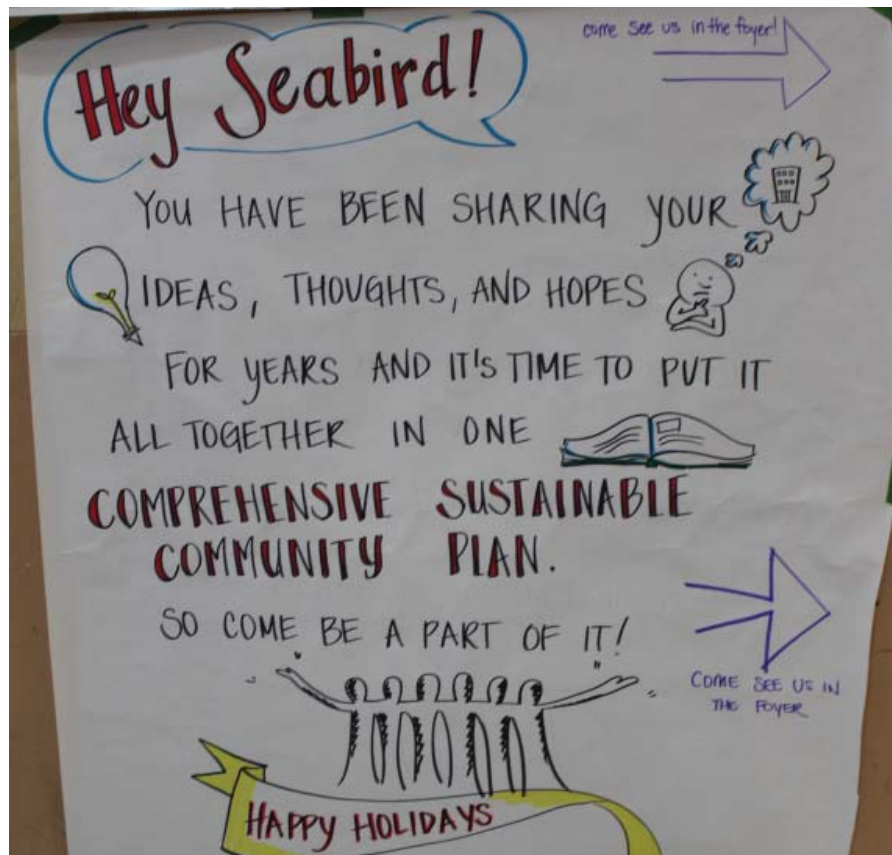 Hey Seabird!
come see us in the foyer!
YOU HAVE BEEN SHARING YOUR
IDEAS, THOUGHTS, AND HOPES
FOR YEARS AND IT'S TIME TO PUT IT
ALL TOGETHER IN ONE
COMPREHENSIVE SUSTAINABLE
COMMUNITY PLAN.
SO COME BE A PART OF IT!
COME SEE US IN
THE FOYER
HAPPY HOLIDAYS